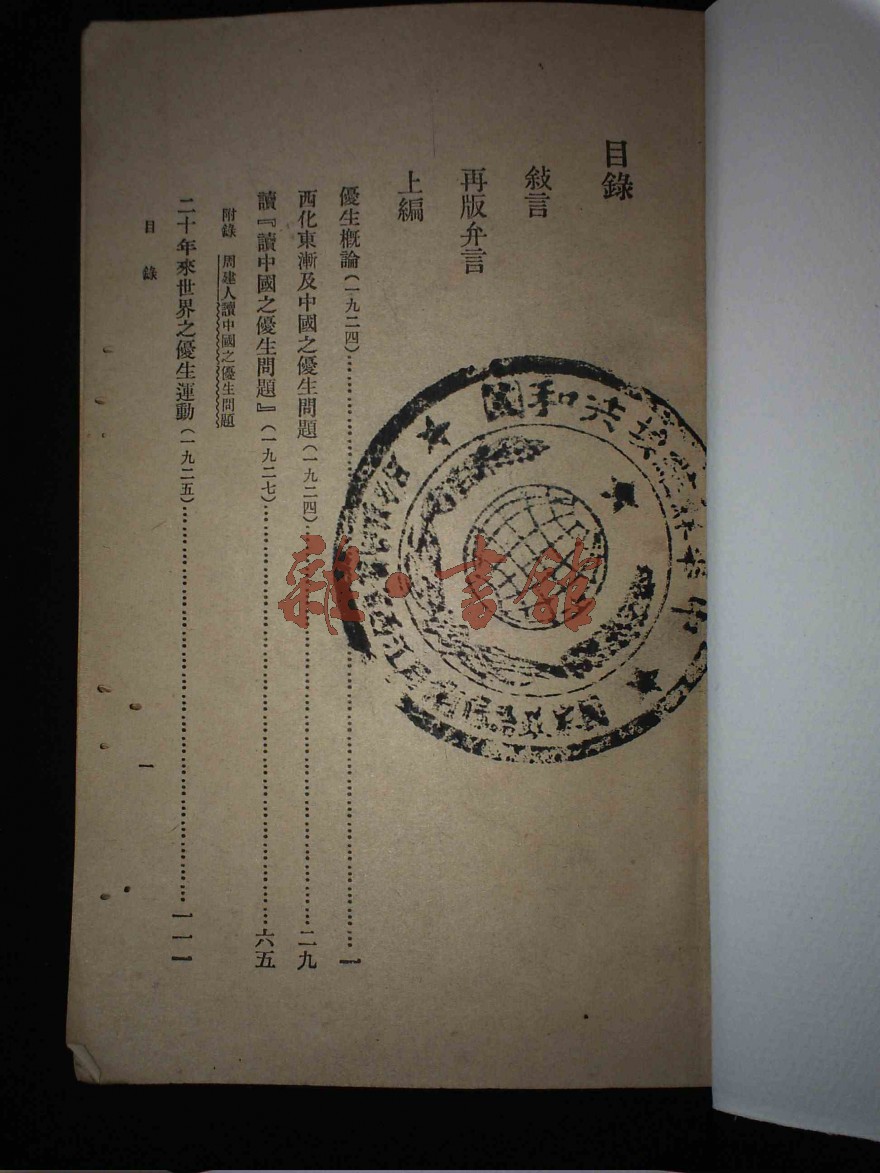 目錄
敍言
再版弁言
上編
優生概論(一九二四)……一
西化東漸及中國之優生問題(一九二四)……二九
讀『讀中國之優生問題』(一九二七)……六五
附錄 周建人讀中國之優生問題
二十年來世界之優生運動(一九二五)……一一一
目錄
一
雜·書館